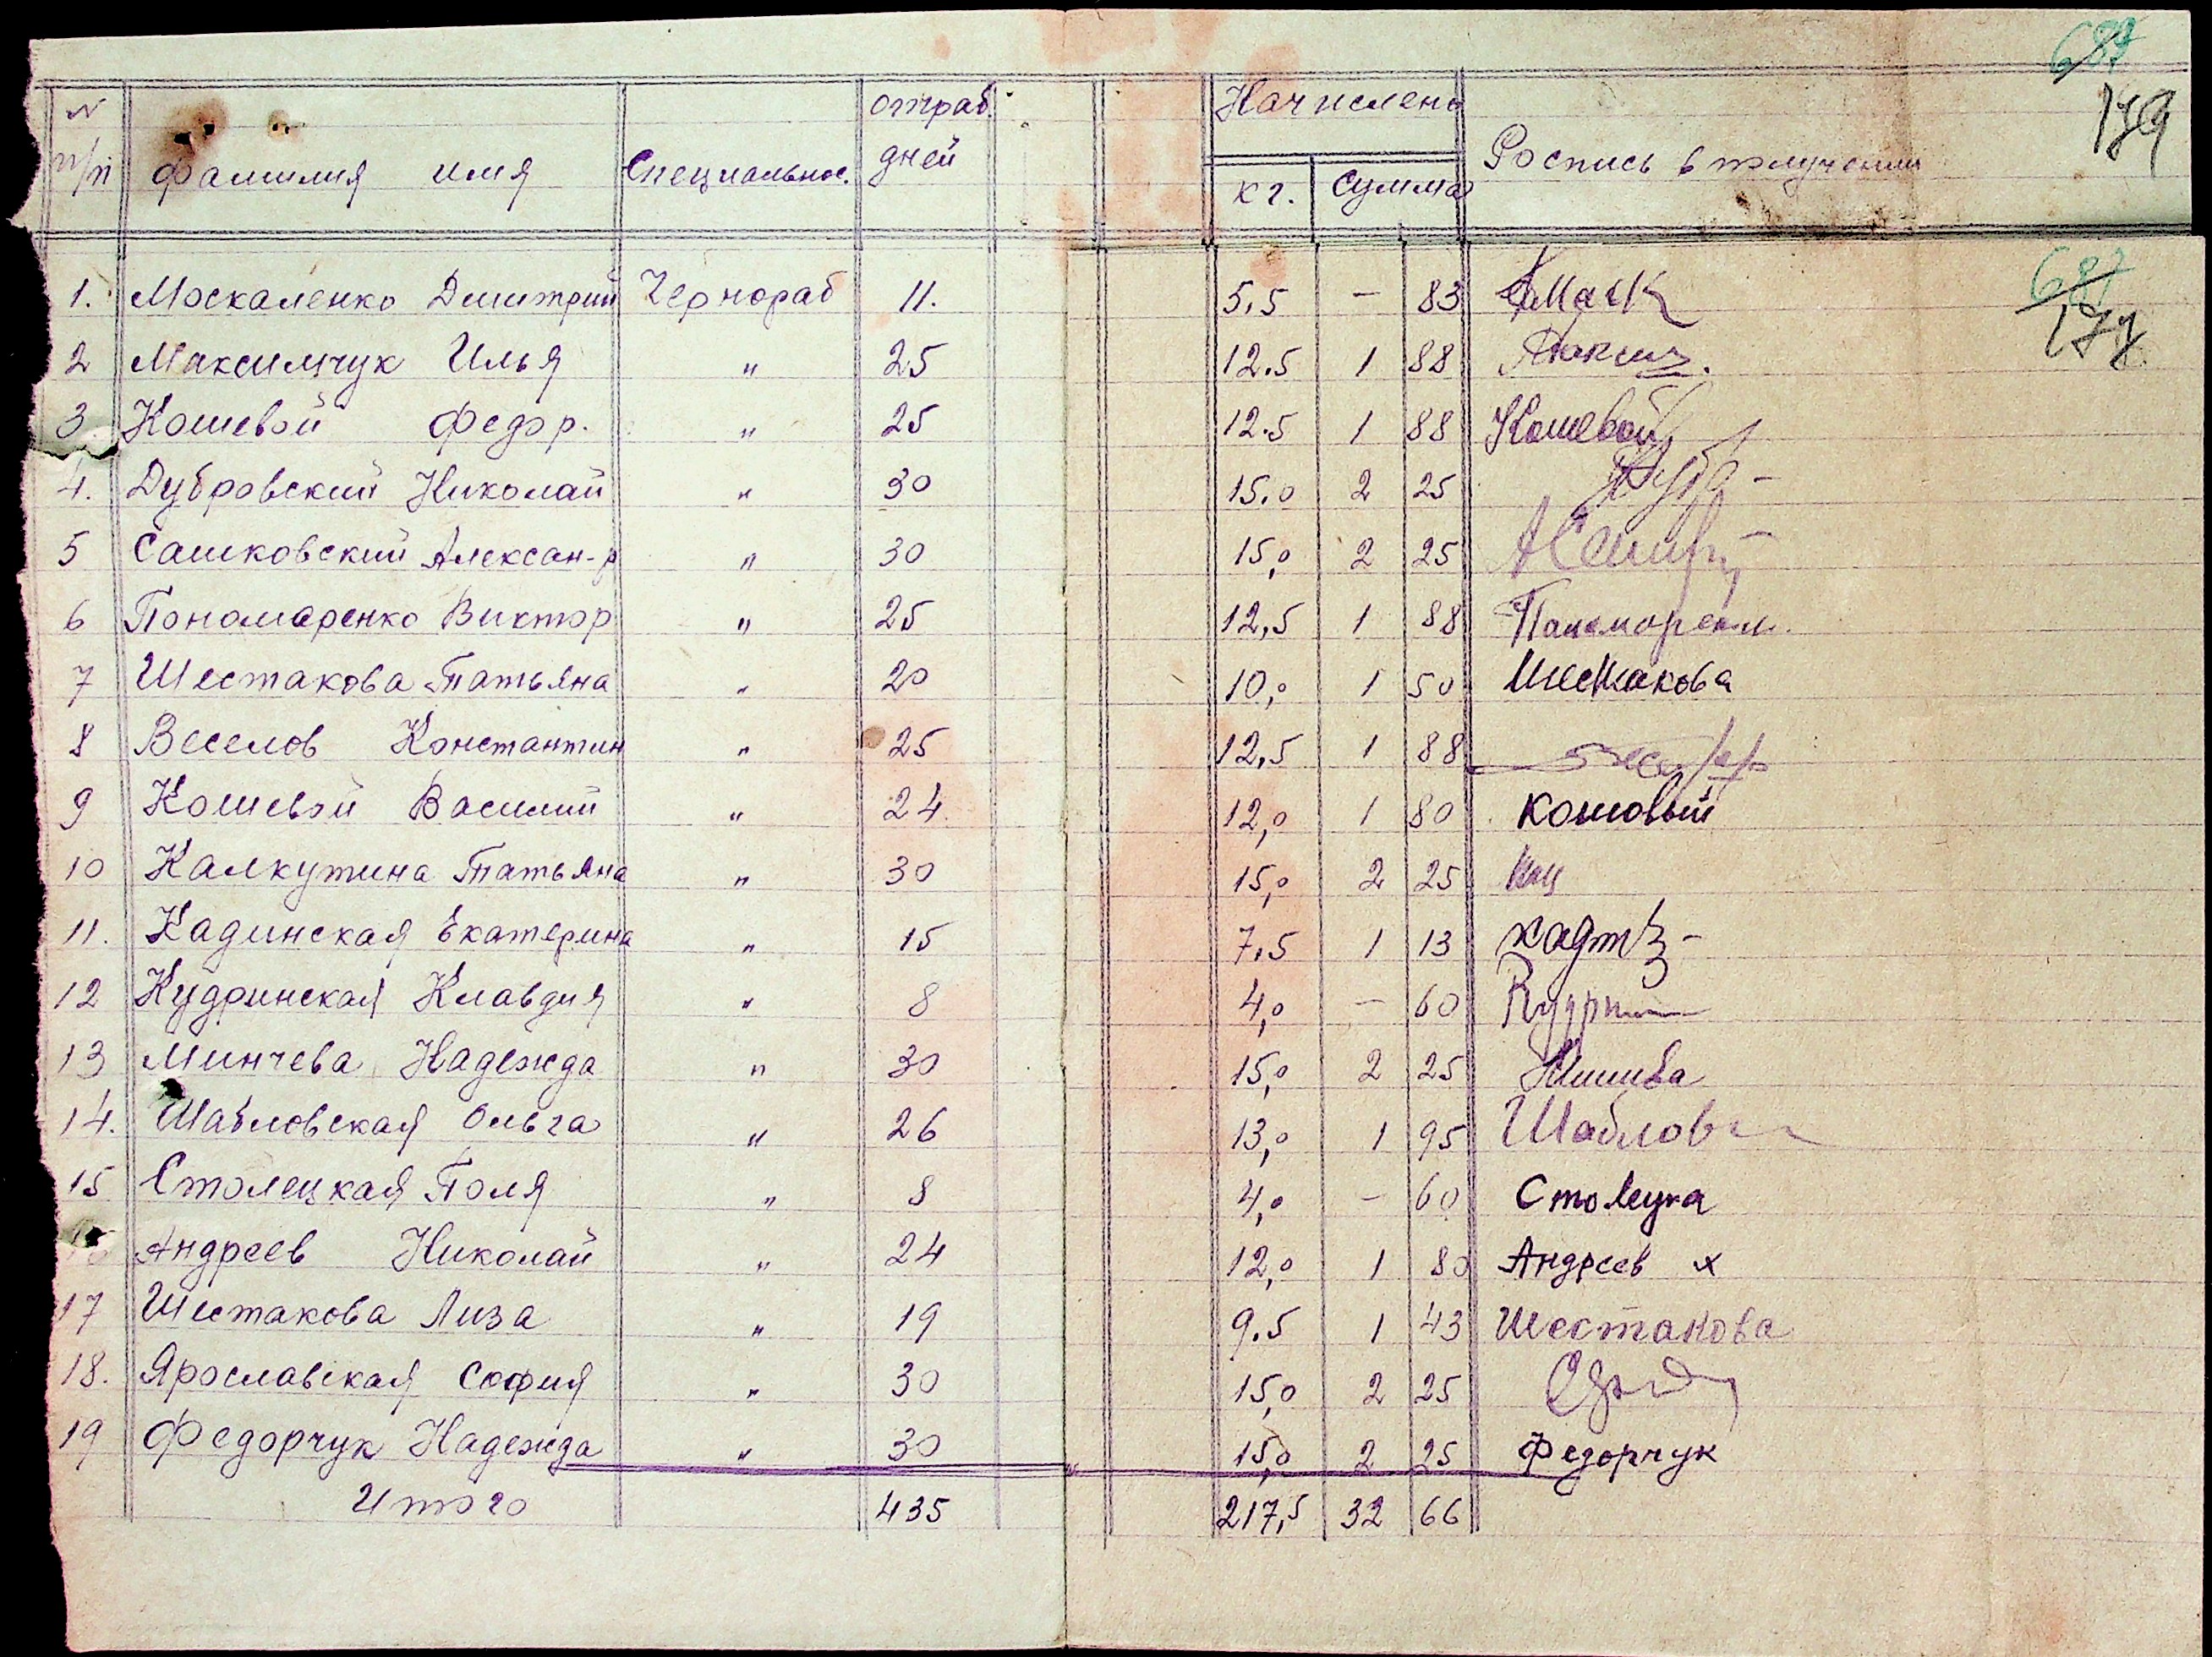 687
179
N п/п Фамилия имя Специальнос. отраб. дней Начислено кг. Сумма Роспись в получении
687
179
1. Москаленко Дмитрий Чернораб 11. 5,5 – 83 Моск
2 Максимчук Илья " 25 12.5 1 88 Максим.
3 Кошевой Федор. " 25 12.5 1 88 Кошевой
4. Дубровский Николай " 30 15.0 2 25
5 Сашковский Алексан-р " 30 15,0 2 25
6 Пономаренко Виктор " 25 12,5 1 88
7 Шестакова Татьяна " 20 10,0 1 50 Шестакова
8 Веселов Константин " 25 12,5 1 88
9 Кошевой Василий " 24 12,0 1 80 Кошовый
10 Калкутина Татьяна " 30 15,0 2 25
11. Кадинская Екатерина " 15 7,5 1 13
12 Кудринская Клавдия " 8 4,0 – 60 Кудрин
13 Минчева Надежда " 30 15,0 2 25
14. Шабловская Ольга " 26 13,0 1 95 Шаблов
15 Столецкая Поля " 8 4,0 – 60
Андреев Николай " 24 12,0 1 80 Андреев х
17 Шестакова Лиза " 19 9.5 1 43 Шестакова
18. Ярославская София " 30 15,0 2 25
19 Федорчук Надежда " 30 15,0 2 25 Федорчук
Итого 435 217,5 32 66